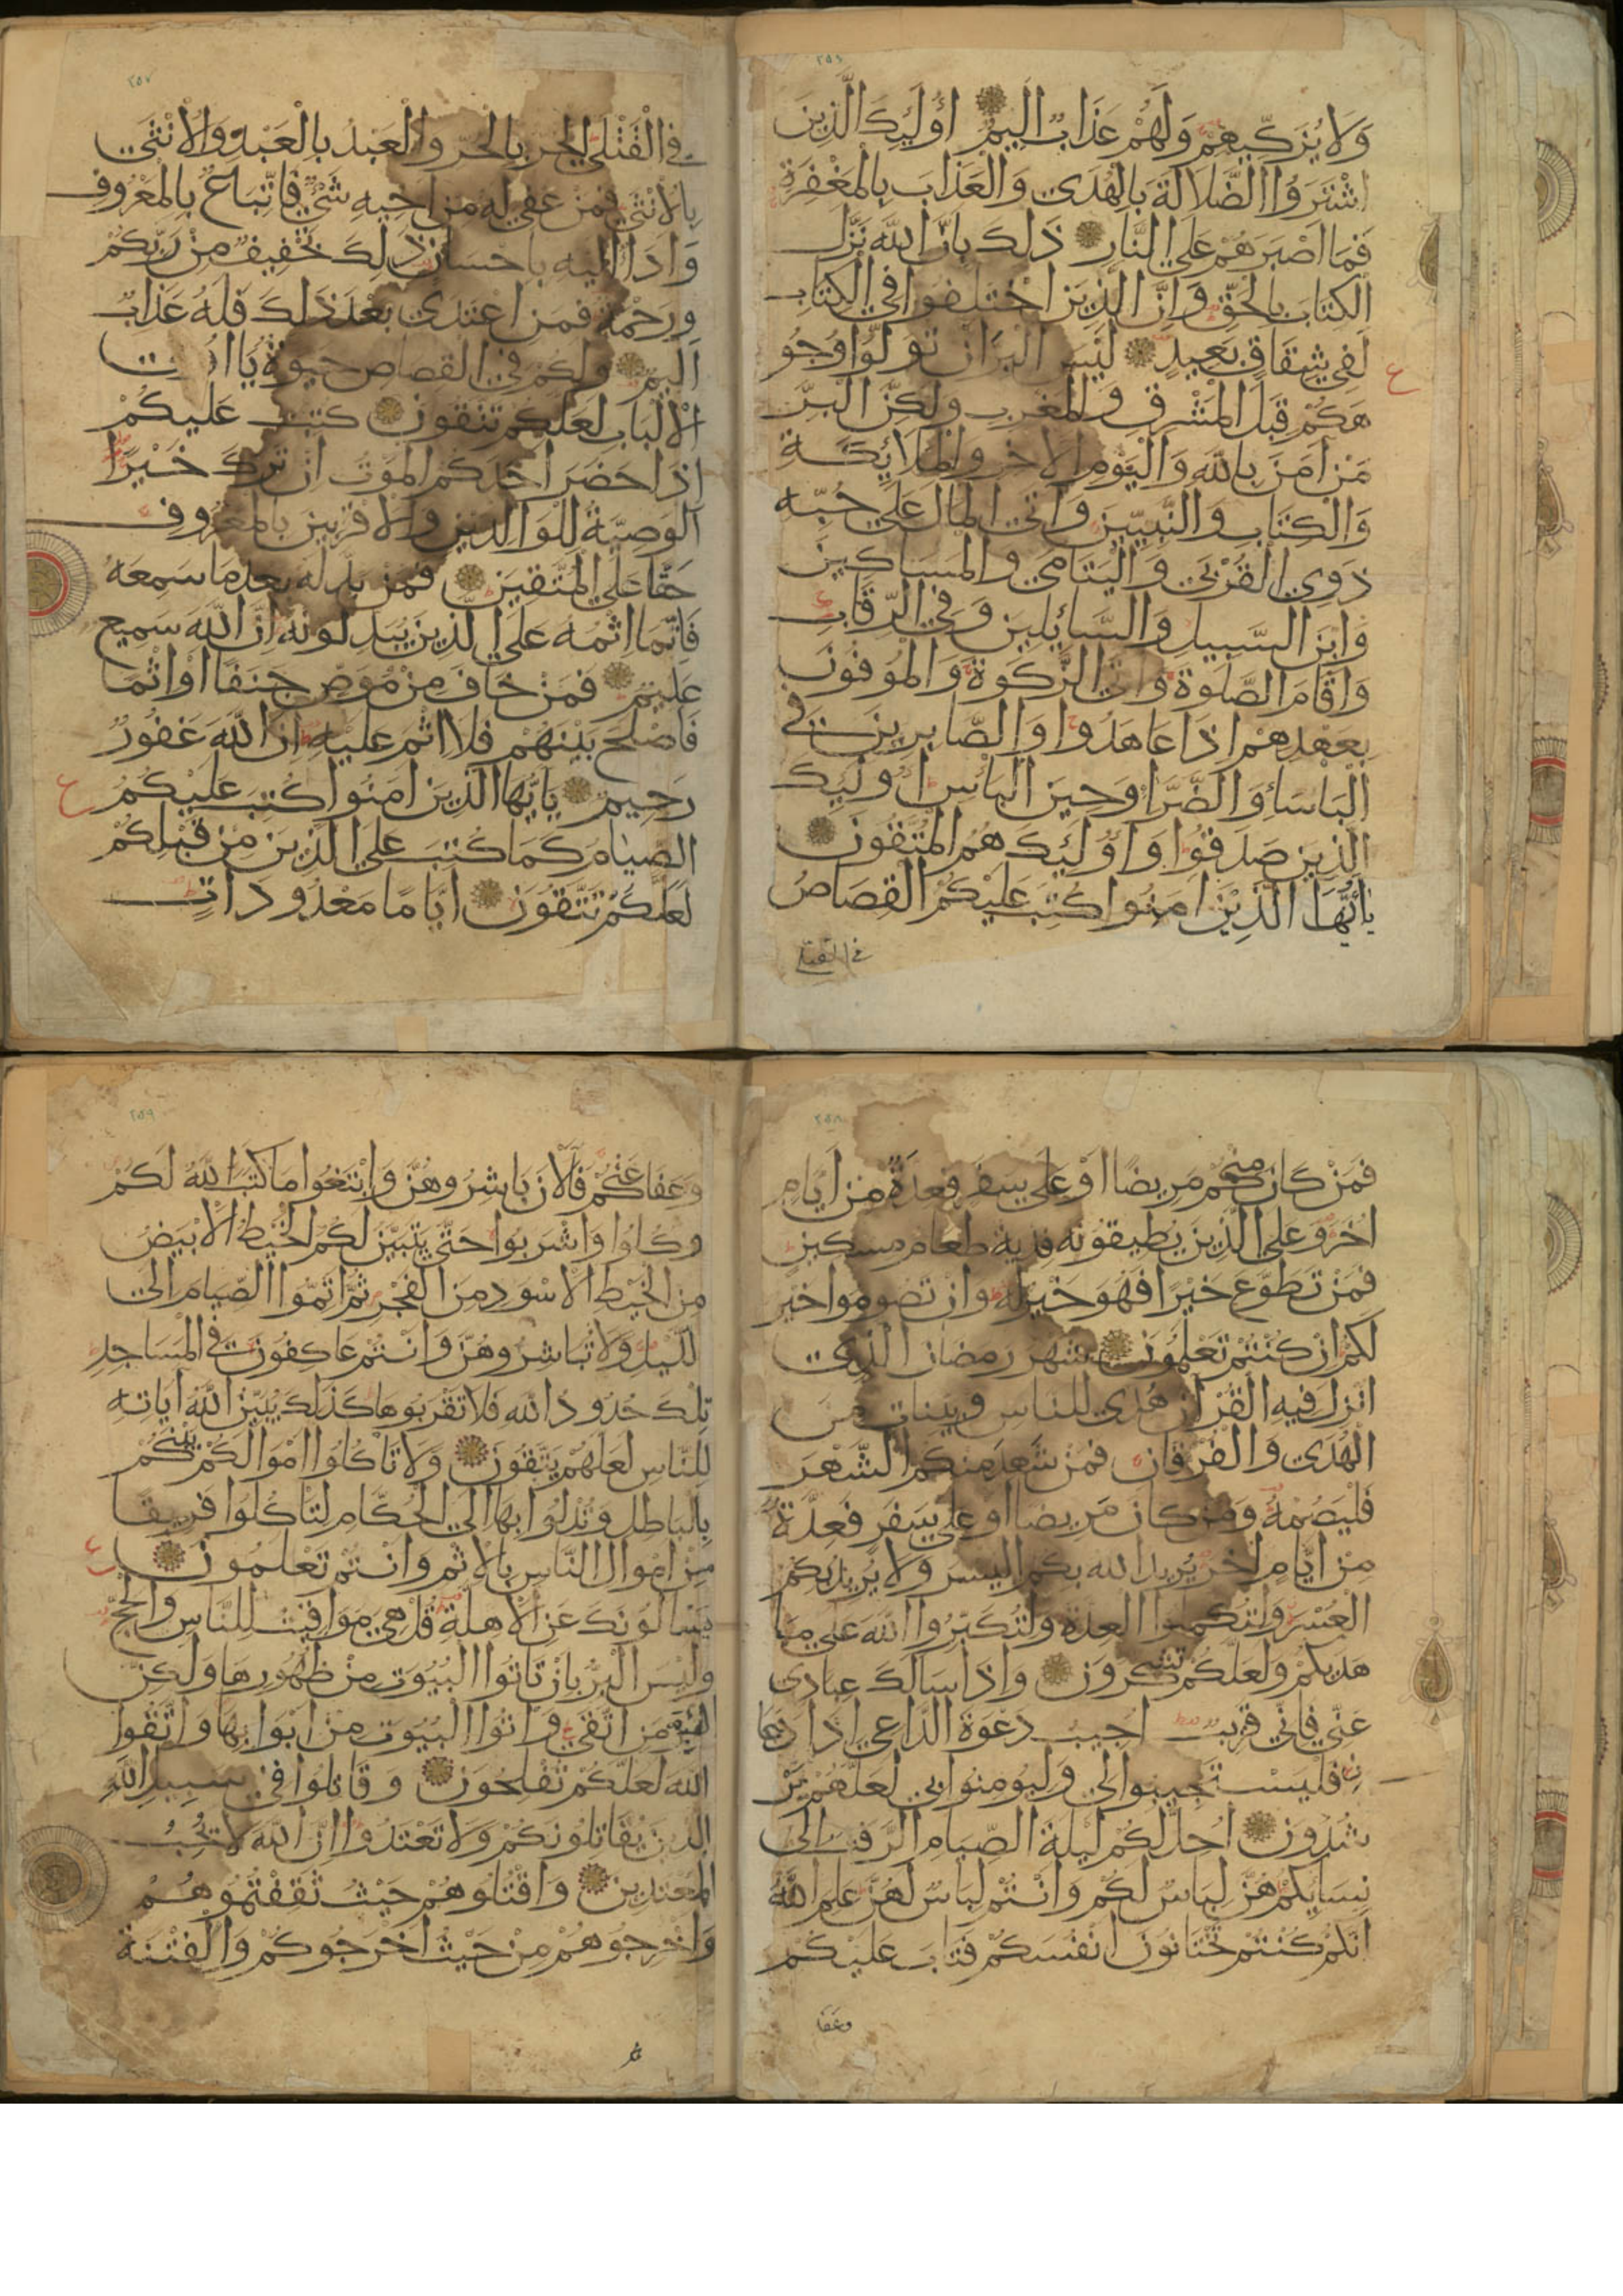 ٢٥٦
ولا يزكيهم ولهم عذاب اليم اولئك الذين
اشتروا الضلالة بالهدى والعذاب بالمغفرة
فما اصبرهم على النار ذلك بان الله نزل
الكتاب بالحق وان الذين اختلفوا في الكتاب
لفي شقاق بعيد ليس البر ان تولوا وجو
هكم قبل المشرق والمغرب ولكن البر
من امن بالله واليوم الاخر والملائكة
والكتاب والنبيين واتى المال على حبه
ذوي القربى واليتامى والمساكين
وابن السبيل والسائلين وفي الرقاب
واقام الصلوة واتى الزكوة والموفون
بعهدهم اذا عاهدوا والصابرين في
الباساء والضراء وحين الباس اولئك
الذين صدقوا واولئك هم المتقون
ياايها الذين امنوا كتب عليكم القصاص
في القتلى
٢٥٧
في القتلى الحر بالحر والعبد بالعبد والانثى
بالانثى فمن عفي له من اخيه شئ فاتباع بالمعروف
واداء اليه باحسان ذلك تخفيف من ربكم
ورحمة فمن اعتدى بعد ذلك فله عذاب
اليم ولكم في القصاص حيوة يا
الالباب لعلكم تتقون كتب عليكم
اذا حضر احدكم الموت ان ترك خيرا
الوصية للوالدين والاقربين بالمعروف
حقا على المتقين فمن بدله بعد ما سمعه
فانما اثمه على الذين يبدلونه ان الله سميع
عليم فمن خاف من موص جنفا او اثما
فاصلح بينهم فلا اثم عليه ان الله غفور
رحيم ياايها الذين امنوا كتب عليكم
الصيام كما كتب على الذين من قبلكم
لعلكم تتقون اياما معدودات
٢٥٨
فمن كان منكم مريضا او على سفر فعدة من ايام
اخر وعلى الذين يطيقونه فدية طعام مسكين
فمن تطوع خيرا فهو خير له وان تصوموا خير
لكم ان كنتم تعلمون شهر رمضان الذي
انزل فيه القران هدى للناس وبينات من
الهدى والفرقان فمن شهد منكم الشهر
فليصمه ومن كان مريضا او على سفر فعدة
من ايام اخر يريد الله بكم اليسر ولا يريد بكم
العسر ولتكملوا العدة ولتكبروا الله على ما
هديكم ولعلكم تشكرون واذا سالك عبادي
عني فاني قريب اجيب دعوة الداعي اذا دعا
ن فليستجيبوا لي وليؤمنوا بي لعلهم ير
شدون احل لكم ليلة الصيام الرفث الى
نسايكم هن لباس لكم وانتم لباس لهن علم الله
انكم كنتم تختانون انفسكم فتاب عليكم
وعفا
٢٥٩
وعفا عنكم فالان باشروهن وابتغوا ما كتب الله لكم
وكلوا واشربوا حتى يتبين لكم الخيط الابيض
من الخيط الاسود من الفجر ثم اتموا الصيام الى
الليل ولا تباشروهن وانتم عاكفون في المساجد
تلك حدود الله فلا تقربوها كذلك يبين الله اياته
للناس لعلهم يتقون ولا تاكلوا اموالكم بينكم
بالباطل وتدلوا بها الى الحكام لتاكلوا فريقا
من اموال الناس بالاثم وانتم تعلمون
يسالونك عن الاهلة قل هي مواقيت للناس والحج
وليس البر بان تاتوا البيوت من ظهورها ولكن
البر من اتقى واتوا البيوت من ابوابها واتقوا
الله لعلكم تفلحون وقاتلوا في سبيل الله
الذين يقاتلونكم ولا تعتدوا ان الله لا يحب
المعتدين واقتلوهم حيث ثقفتموهم
واخرجوهم من حيث اخرجوكم والفتنة